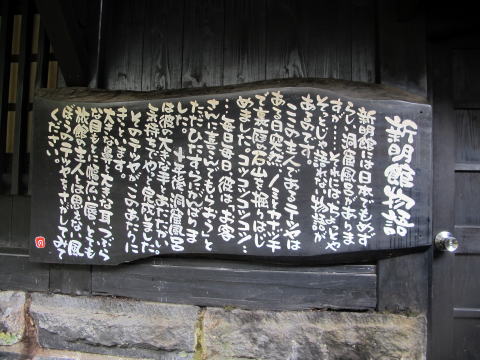 新明館物語
新明館には日本でもめずら
らしい洞窟風呂がありま
す……それにはなみだじゃ
そうじゃ語れない物語が
あるのです。
ここの主人であるテツヤは
ある日突然ノミとカナヅチ
で裏庭の岩山を掘りはじ
めました。コツコツコツコツ…
毎日毎日彼は、お客
さんに喜んでもらおうと
ただひたすらがんばりま
した。十年後、洞窟風呂
は彼の大きな手とあたたかい
気持でみごと完成しました
そのテツヤは今このあたりに
きっといます。
大きな鼻、大きな耳、つぶら
な目もとに幅広い唇、とても
旅館の主人には思えない風
ぼうのテツヤをさがしてみて
ください。